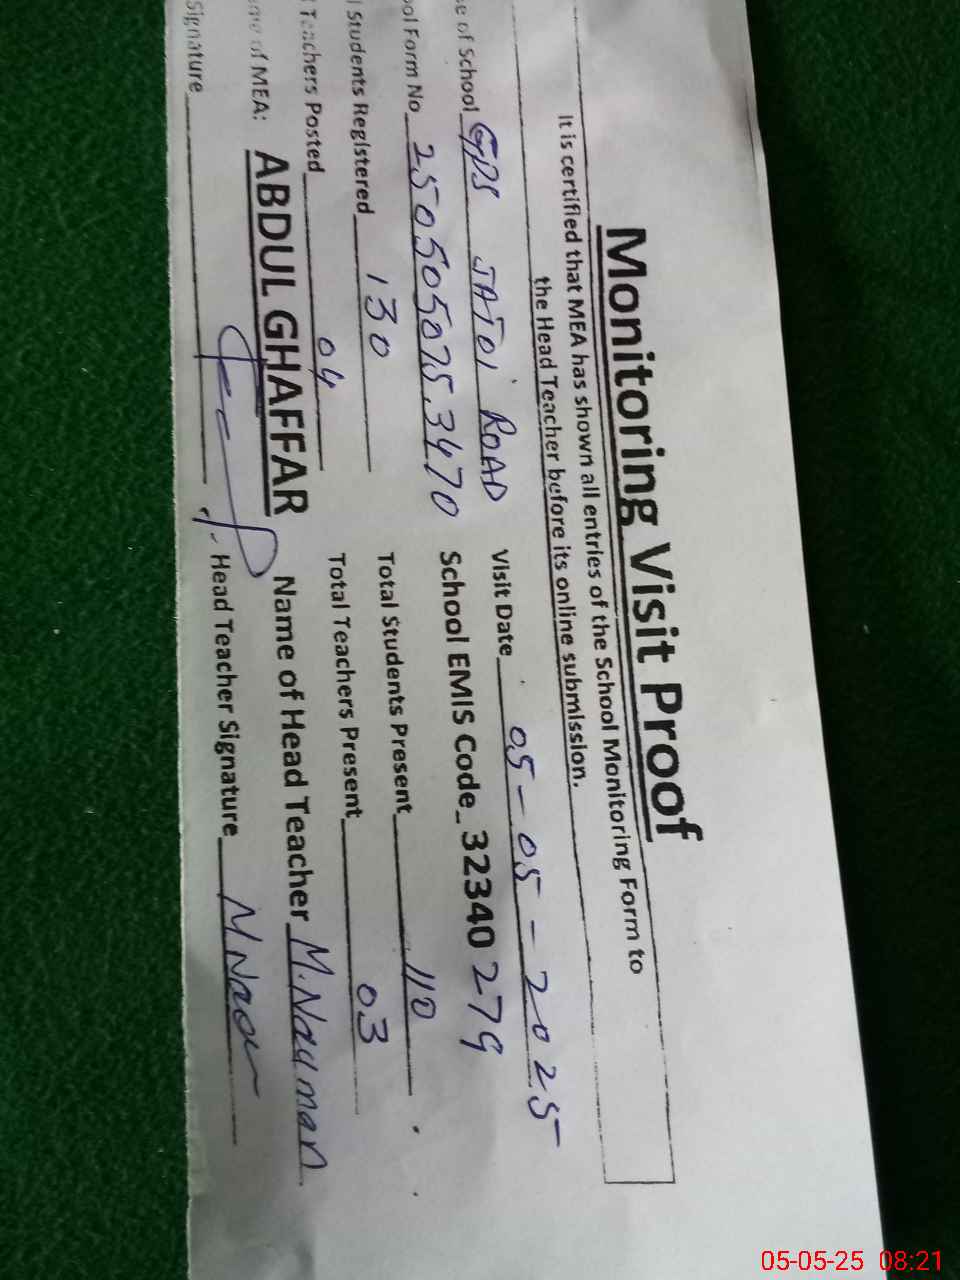 Monitoring Visit Proof
It is certified that MEA has shown all entries of the School Monitoring Form to
the Head Teacher before its online submission.
e of School GPS JATOI ROAD Visit Date 05-05-2025
ool Form No 2505050753470 School EMIS Code_32340279
l Students Registered 130 Total Students Present 110
l Teachers Posted 04 Total Teachers Present 03
ame of MEA: ABDUL GHAFFAR Name of Head Teacher M.Nauman
Signature Head Teacher Signature
05-05-25 08:21